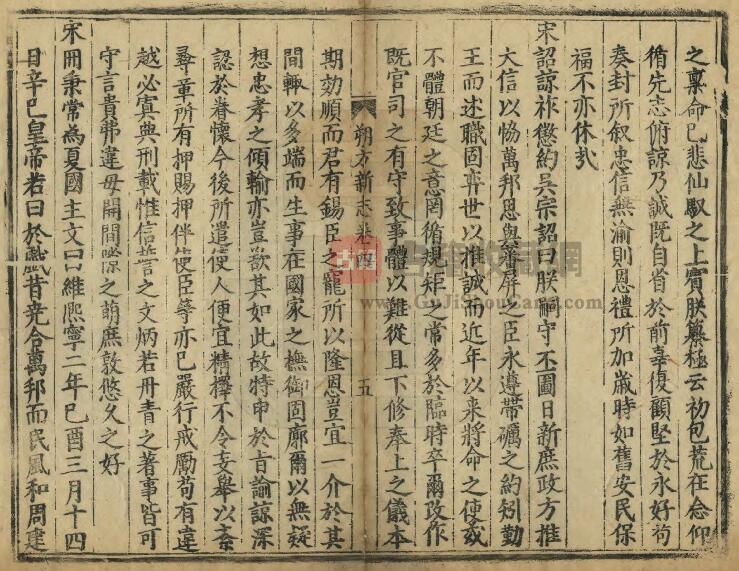 之稟命已悲仙馭之上賓朕纂極云初包荒在念仰
循先志俯諒乃誠既自省於前辜復顧堅於永好苟
奏封所叙忠信無渝則恩禮所加歲時如舊安民保
福不亦休㢤
宋詔諒祚懲約吳宗詔曰朕嗣守丕圖日新庶政方推
大信以恊萬邦思與藩屏之臣永遵帶礪之約矧勤
王而述職固弈世以推誠而近年以来將命之使或
不體朝廷之意罔循規矩之常多於臨時卒爾改作
既官司之有守致事體以難從且下修奉上之儀本
朔方新志卷四
五
期効順而君有錫臣之寵所以隆恩豈宜一介於其
間輙以多端而生事在國家之撫御固廓爾以無疑
想忠孝之傾輸亦豈欲其如此故特申於旨諭諒深
認於眷懷今後所遣使人便宜精擇不令妄舉以紊
尋章所有押賜押伴使臣等亦已嚴行戒勵苟有違
越必寘典刑載惟信誓之文炳若丹青之著事皆可
守言貴弗違毋開間隙之萌庶敦悠久之好
宋冊秉常為夏國主文曰維熈寧二年巳酉三月十四
日辛巳皇帝若曰於戲昔堯合萬邦而民風和周建
古籍
www.GuJiShouCang.com